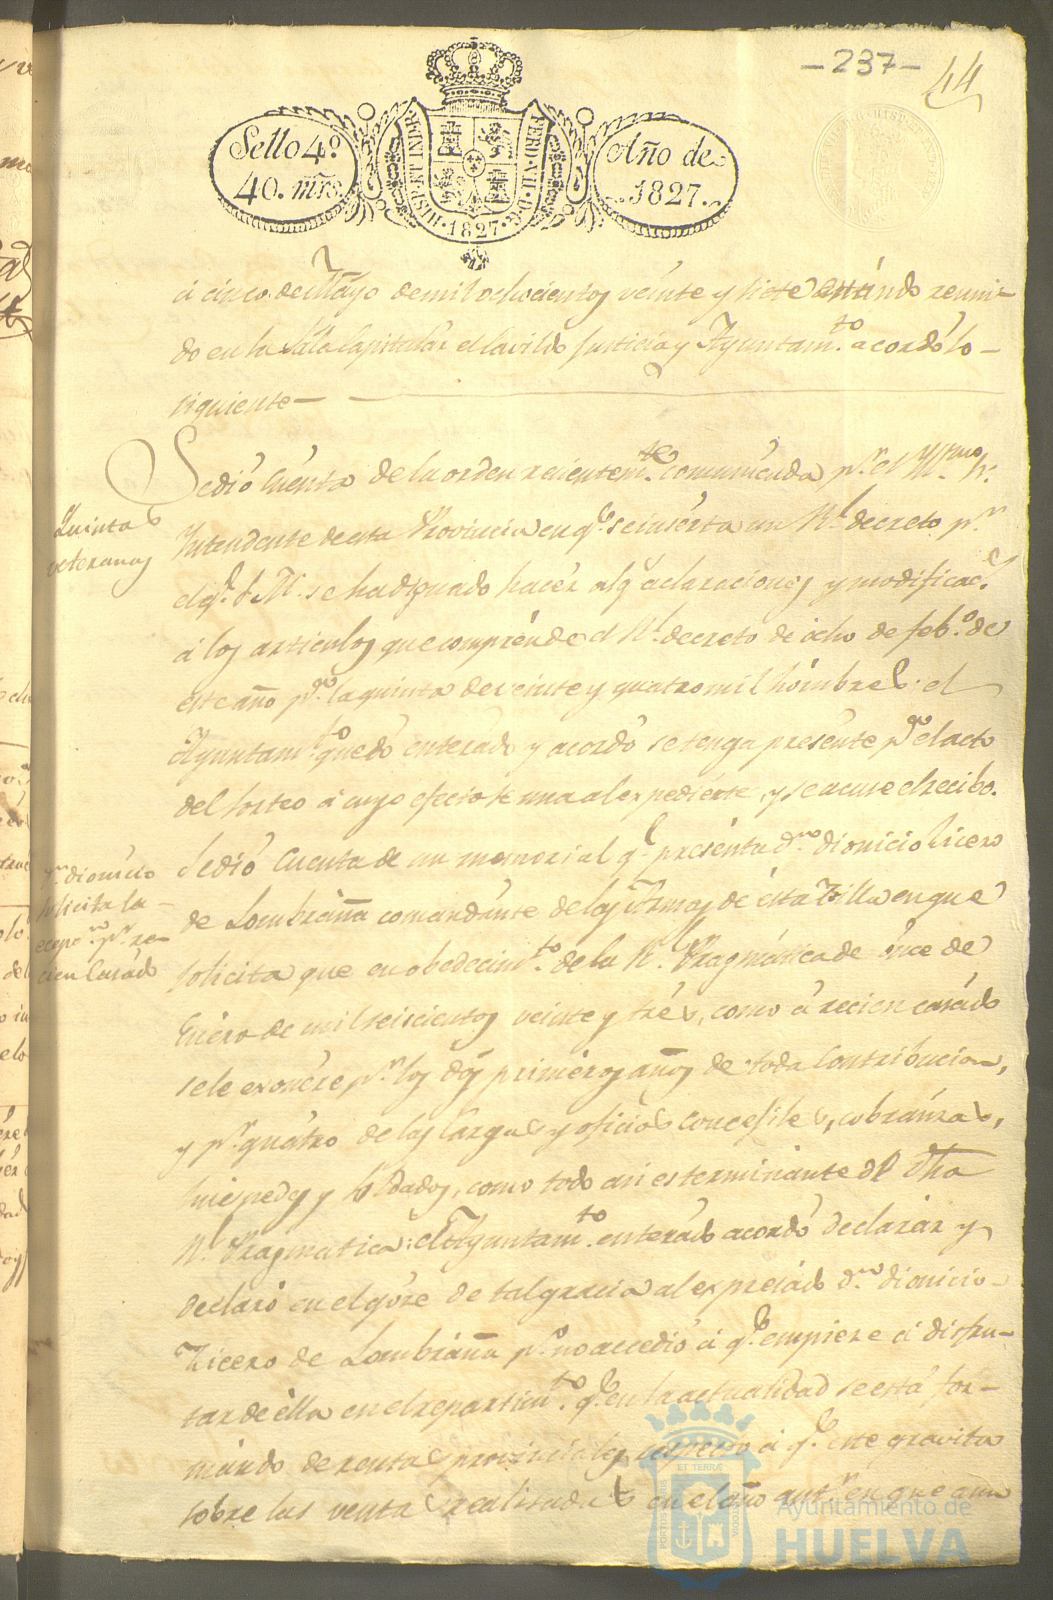 -237-
44
Sello 4º
40. mrs.
HISP. ET IND. R.
FERD. VII. D. G.
·1827·
Año de
1827.
á cinco de Mayo de mil ochocientos veinte y siete estándo reuni-
do en la Sala Capitulár el Cavildo Justicia y Ayuntam.to acordó lo-
siguiente—
Quintas
veteranos
Se dió Cuenta de la orden recientem.te comunicada p.r el Ill.mo Sr.
Yntendente de esta Provincia en q.e se inserta un Rl. decreto p.r
el q.e S. M. se ha dignado hacér alg.s aclaraciones y modificac.s
á los articulos que comprénde el Rl. decreto de ócho de feb.o de
este año p.a la quinta de veinte y quatro mil hómbres; el
Ayuntam.to quedó enterado y acordó se tenga presente p.a el acto
del sorteo á cuyo efecto se una al expediénte, y se acuse el recibo.
D.n dionicio
solicita la
p.r re-
cien Casado
Se dió Cuenta de un memorial q.e presénta d.n dionicio Licero
de Lombráña comandánte de las Armas de ésta Villa en que
solicita que en obedecim.to de la Rl. Pragmática de ónce de
Enéro de mil seiscientos veinte y trés, como á recien casádo
se le exonére p.r los dós priméros años de toda Contribucion,
y p.r quátro de las Cargas y oficios Concegiles, cobránzas,
huéspedes y Soldados, como todo asi es terminante de dha
Rl. Pragmatica: el Ayuntam.to enterádo acordó declarár y
declaró en el góse de tal gracia al expresádo d.n dionicio-
Licero de Lombráña p.o no accedió á q.e empiéze á disfru-
tar de élla en el repartim.to q.e en la actualidad se está for-
mándo de rentas provinciáles respecto á q.e este gravita
sobre las ventas realisadas en el año ant.r en que aun
Ayuntamiento de
HUELVA